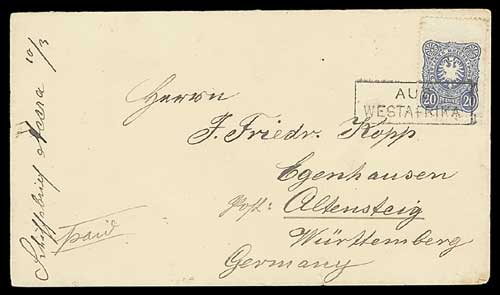 Schiffsbrief Accra 10/3
paid
Herrn
J. Friedr. Kopp
Egenhausen
Post: Altensteig
Württemberg
Germany
AUS
WESTAFRIKA
20 20